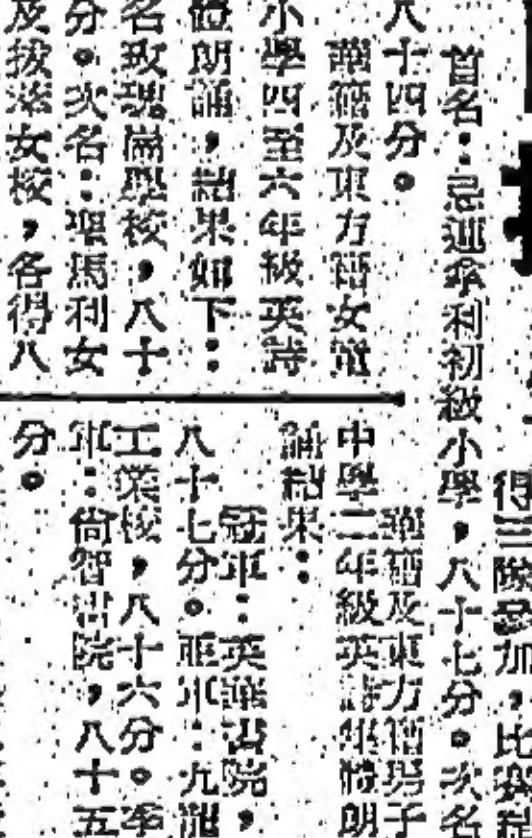 得三隊參加，比賽結
首名：忌連拿利初級小學，八十七分。次名
八十四分。
華籍及東方籍女童
小學四至六年級英詩
體朗誦，結果如下：
名玫瑰崗學校，八十
分。次名：聖馬利女
及拔萃女校，各得八
華籍及東方籍男子
中學二年級英詩集體朗
誦結果：
冠軍：英華書院，
八十七分。亞軍：九龍
工業校，八十六分。季
軍：尚智書院，八十五
分。